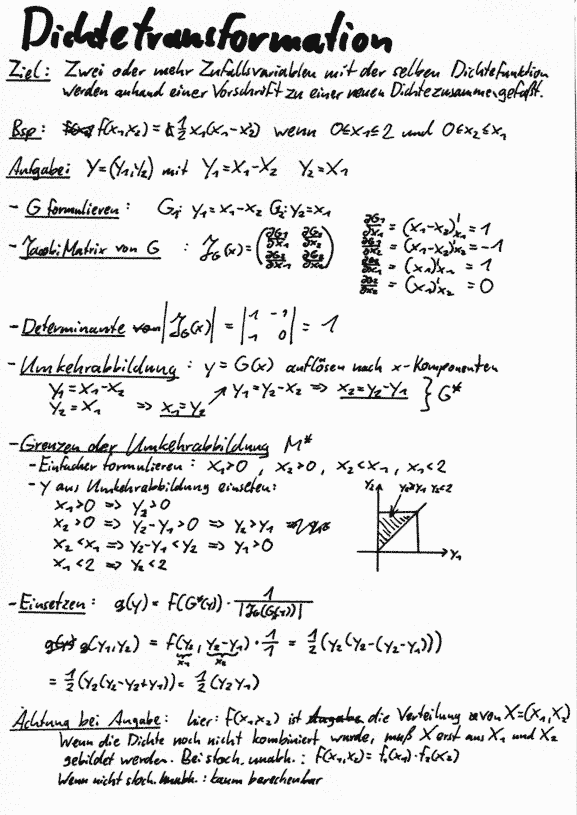 Dichtetransformation
Ziel: Zwei oder mehr Zufallsvariablen mit der selben Dichtefunktion
werden anhand einer Vorschrift zu einer neuen Dichte zusammengefaßt.
Bsp: f(x₁,x₂) = ½ x₁(x₁-x₂) wenn 0≤x₁≤2 und 0≤x₂≤x₁
Aufgabe: Y=(Y₁,Y₂) mit Y₁=X₁-X₂ Y₂=X₁
- G formulieren: G₁: y₁=x₁-x₂ G₂: y₂=x₁
- Jacobi Matrix von G : J_G(x) = (∂G₁/∂x₁ ∂G₁/∂x₂ ∂G₂/∂x₁ ∂G₂/∂x₂)
∂G₁/∂x₁ = (x₁-x₂)'x₁ = 1
∂G₁/∂x₂ = (x₁-x₂)'x₂ = -1
∂G₂/∂x₁ = (x₁)'x₁ = 1
∂G₂/∂x₂ = (x₁)'x₂ = 0
- Determinante |J_G(x)| = |1 -1 1 0| = 1
- Umkehrabbildung : y = G(x) auflösen nach x-Komponenten
y₁=x₁-x₂ y₁=y₂-x₂ => x₂=y₂-y₁ } G*
y₂=x₁ => x₁=y₂
- Grenzen der Umkehrabbildung M*
- Einfacher formulieren : x₁>0 , x₂>0 , x₂<x₁ , x₁<2
- y aus Umkehrabbildung einsetzen:
x₁>0 => y₂>0
x₂>0 => y₂-y₁>0 => y₂>y₁
x₂<x₁ => y₂-y₁<y₂ => y₁>0
x₁<2 => y₂<2
y₂ y₂>y₁ y₂<2
y₁
- Einsetzen : g(y) = f(G*(y)) · 1/|J_G(G*(y))|
g(y₁,y₂) = f(y₂, y₂-y₁) · 1/1 = ½(y₂(y₂-(y₂-y₁)))
x₁ x₂
= ½(y₂(y₂-y₂+y₁)) = ½(y₂y₁)
Achtung bei Angabe: hier: f(x₁x₂) ist die Verteilung von X=(X₁,X₂)
Wenn die Dichte noch nicht kombiniert wurde, muß X erst aus X₁ und X₂
gebildet werden. Bei stoch. unabh. : f(x₁,x₂) = f₁(x₁)·f₂(x₂)
Wenn nicht stoch. unabh. : kaum berechenbar